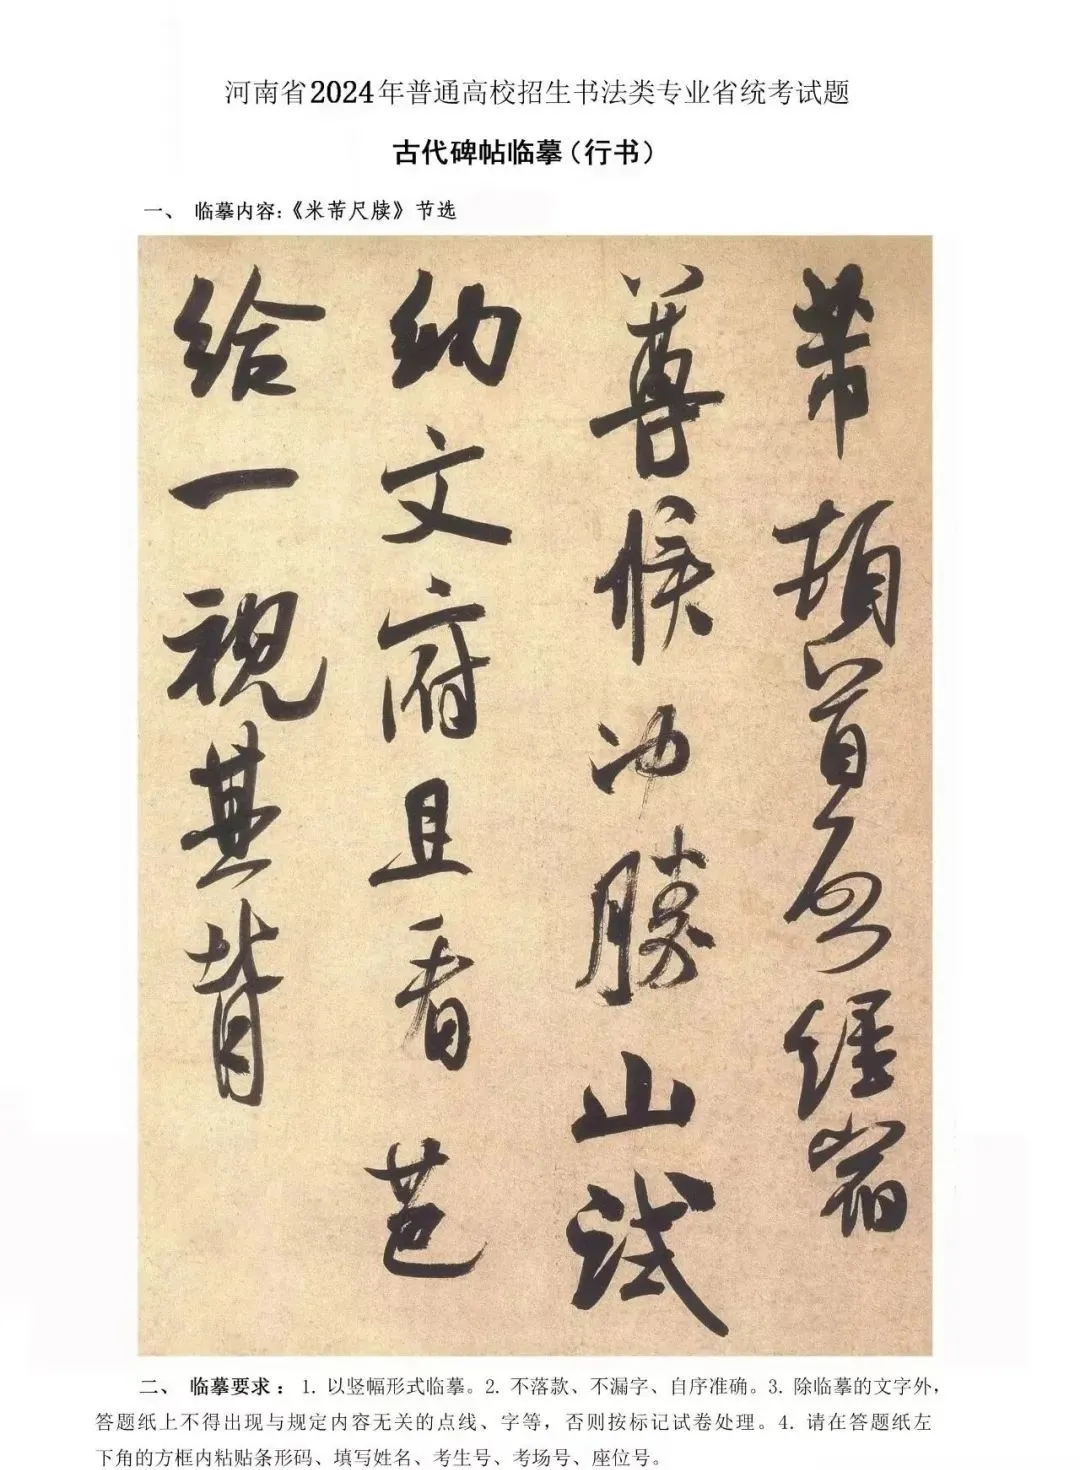 河南省2024年普通高校招生书法类专业省统考试题
古代碑帖临摹（行书）
一、 临摹内容：《米芾尺牍》节选
芾頓首再啓經宿
尊候沖勝山試
幼文府且看芭
給一視其背
二、 临摹要求： 1. 以竖幅形式临摹。2. 不落款、不漏字、自序准确。3. 除临摹的文字外，
答题纸上不得出现与规定内容无关的点线、字等，否则按标记试卷处理。4. 请在答题纸左
下角的方框内粘贴条形码、填写姓名、考生号、考场号、座位号。